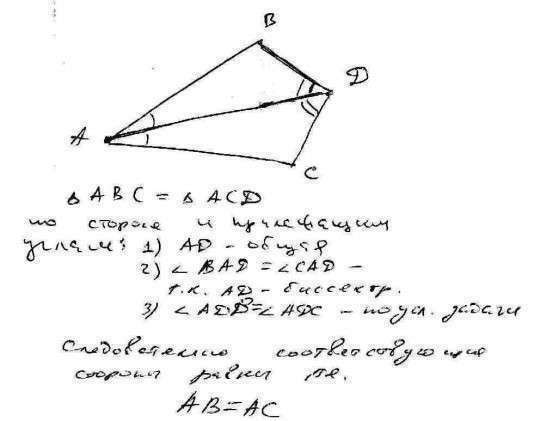 B
D
A
C
△ABC = △ACD
по стороне и прилежащим
углам: 1) AD - общая
2) ∠BAD = ∠CAD -
т.к. AD - биссектр.
3) ∠ADB = ∠ADC - по усл. задачи
Следовательно соответствующие
стороны равны, т.е.
AB = AC